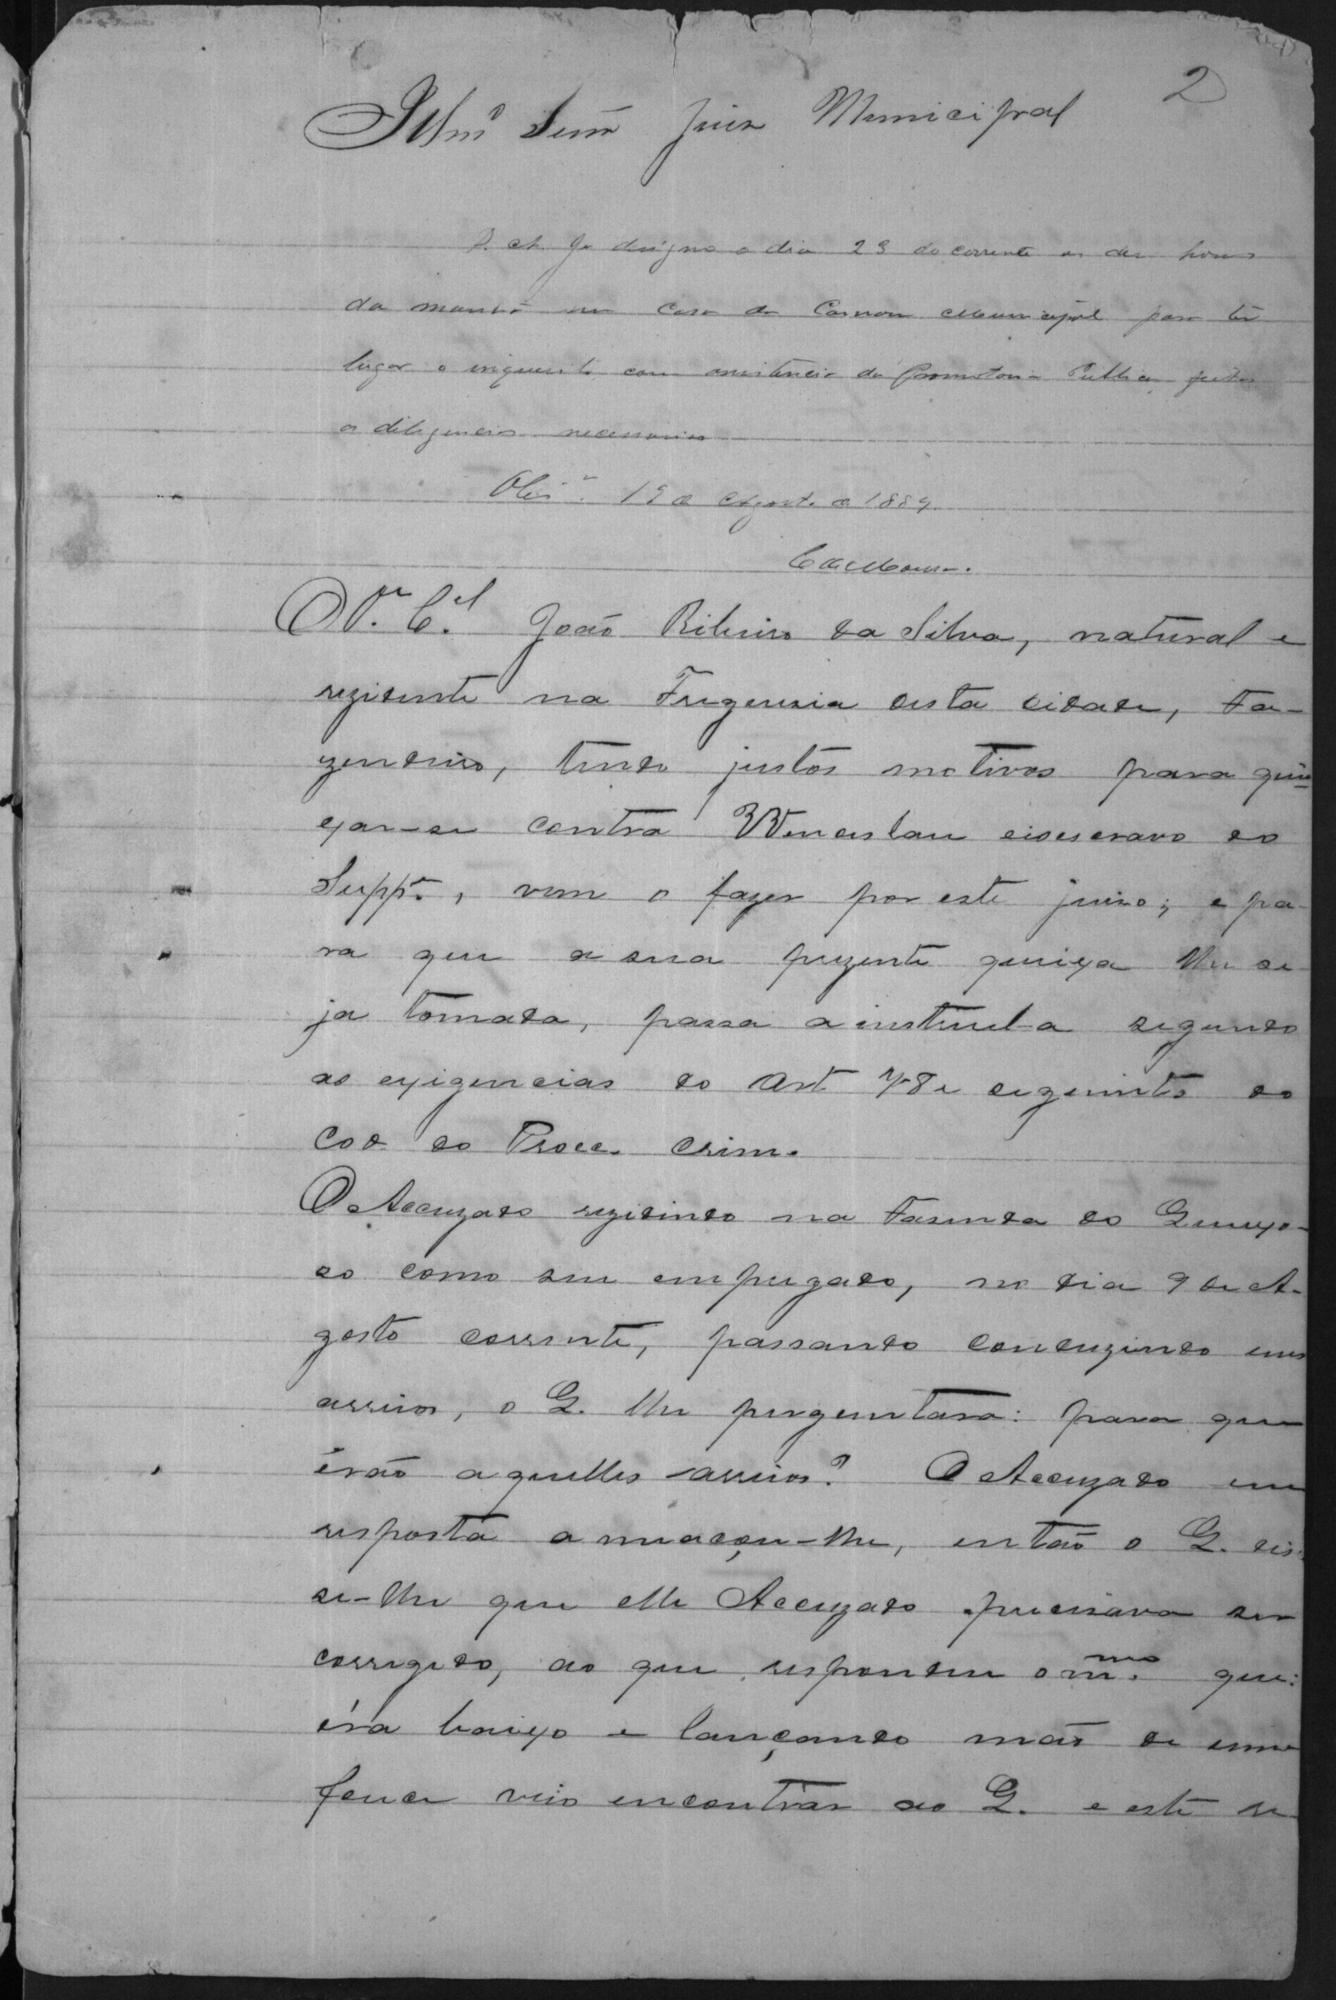 2
Illmº Senr Juiz Municipal
designo o dia 23 do corrente as dez horas
da manhã na Casa da Camara Municipal para ter
lugar o inquerito com assistencia da Promotoria Publica, feitas
as diligencias necessarias
19 de Agosto de 1889.
O Joáo Ribeiro da Silva, natural e
rezidente na Freguezia desta cidade, Fa-
zendeiro, tendo justos motivos para quei-
xar-se contra Wenceslau eisescravo do
Suppe., vem o fazer por este juizo; e pa-
ra que a sua prezente queixa lhe se-
ja tomada, passa a instruil-a segundo
as exigencias do Art 78 e seguintes do
Cod do Proce. Crim.
O Accuzado rezidindo na Fasenda do Queixo-
so como seu empregado, no dia 9 de A-
gosto corrente, passando conduzindo uns
arreios, o Q. lhe perguntara: para que
érão aquelles arreios? O Accuzado em
resposta ameaçou-lhe, então o Q. dis-
se-lhe que elle Accuzado precisava ser
corregido, ao que respondeu o mmo. que:
éra baixo e lançando mão de uma
fouce veio encontrar ao Q. e este se